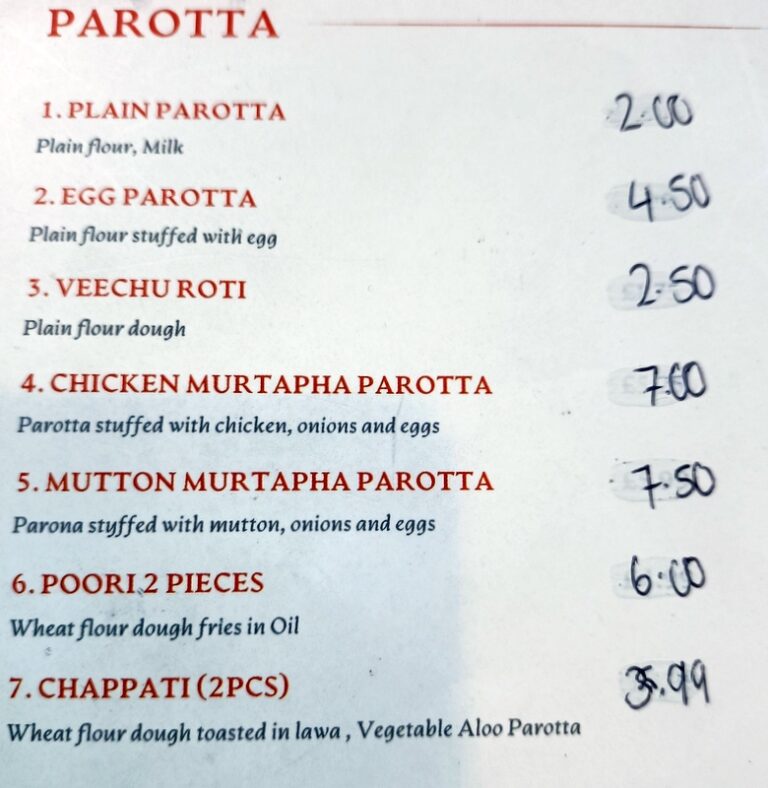 PAROTTA
1. PLAIN PAROTTA 2.00
Plain flour, Milk
2. EGG PAROTTA 4.50
Plain flour stuffed with egg
3. VEECHU ROTI 2.50
Plain flour dough
4. CHICKEN MURTAPHA PAROTTA 7.00
Parotta stuffed with chicken, onions and eggs
5. MUTTON MURTAPHA PAROTTA 7.50
Parona styffed with mutton, onions and eggs
6. POORI 2 PIECES 6.00
Wheat flour dough fries in Oil
7. CHAPPATI (2PCS)
Wheat flour dough toasted in lawa , Vegetable Aloo Parotta